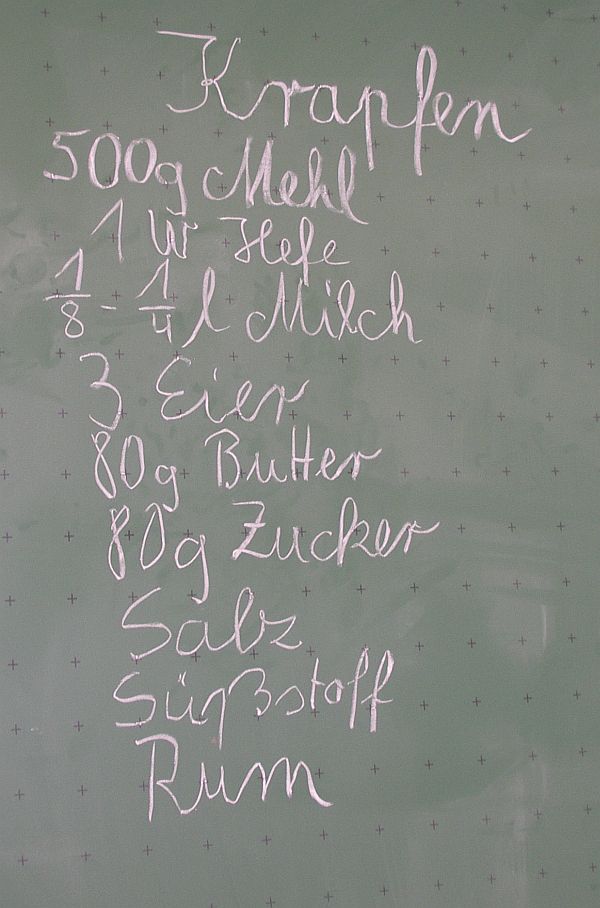 Krapfen
500g Mehl
1 W Hefe
1/8 - 1/4 l Milch
3 Eier
80g Butter
80g Zucker
Salz
Süßstoff
Rum